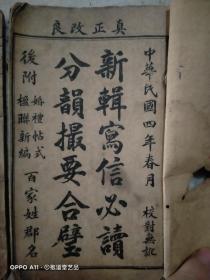 真正改良
中華民國四年春月 校對無訛
新輯寫信必讀
分韻撮要合璧
後附 婚禮帖式 楹聯新編 百家姓郡名
OPPO A11 · ©敬道堂古艺品